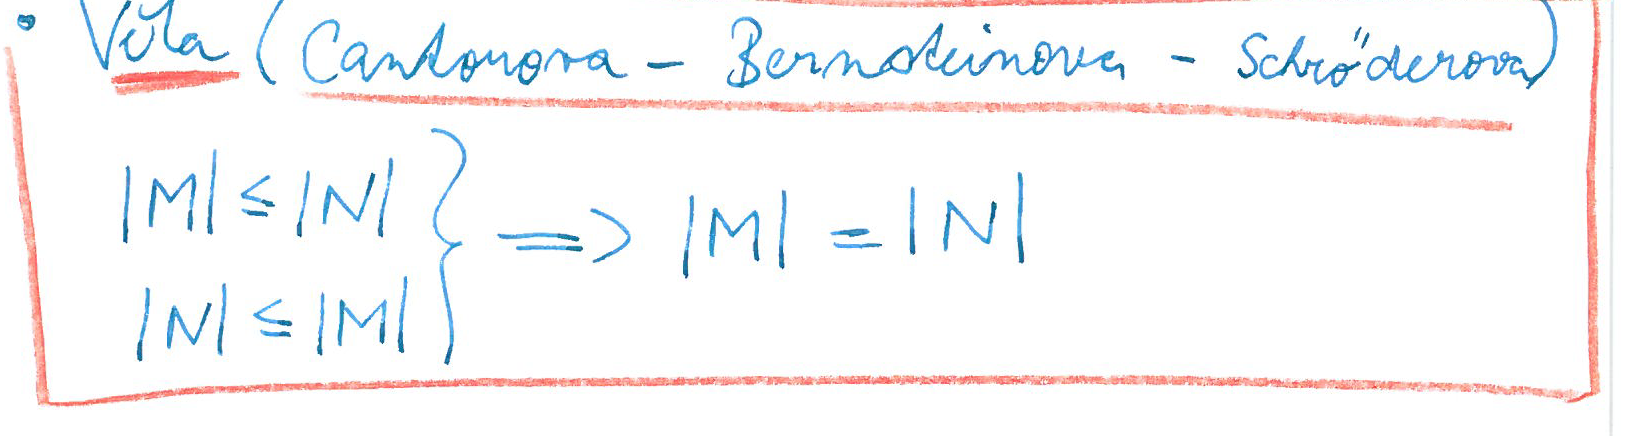 • Věta (Cantorova - Bernsteinova - Schröderova)
|M| ≤ |N|
|N| ≤ |M| } ⟹ |M| = |N|